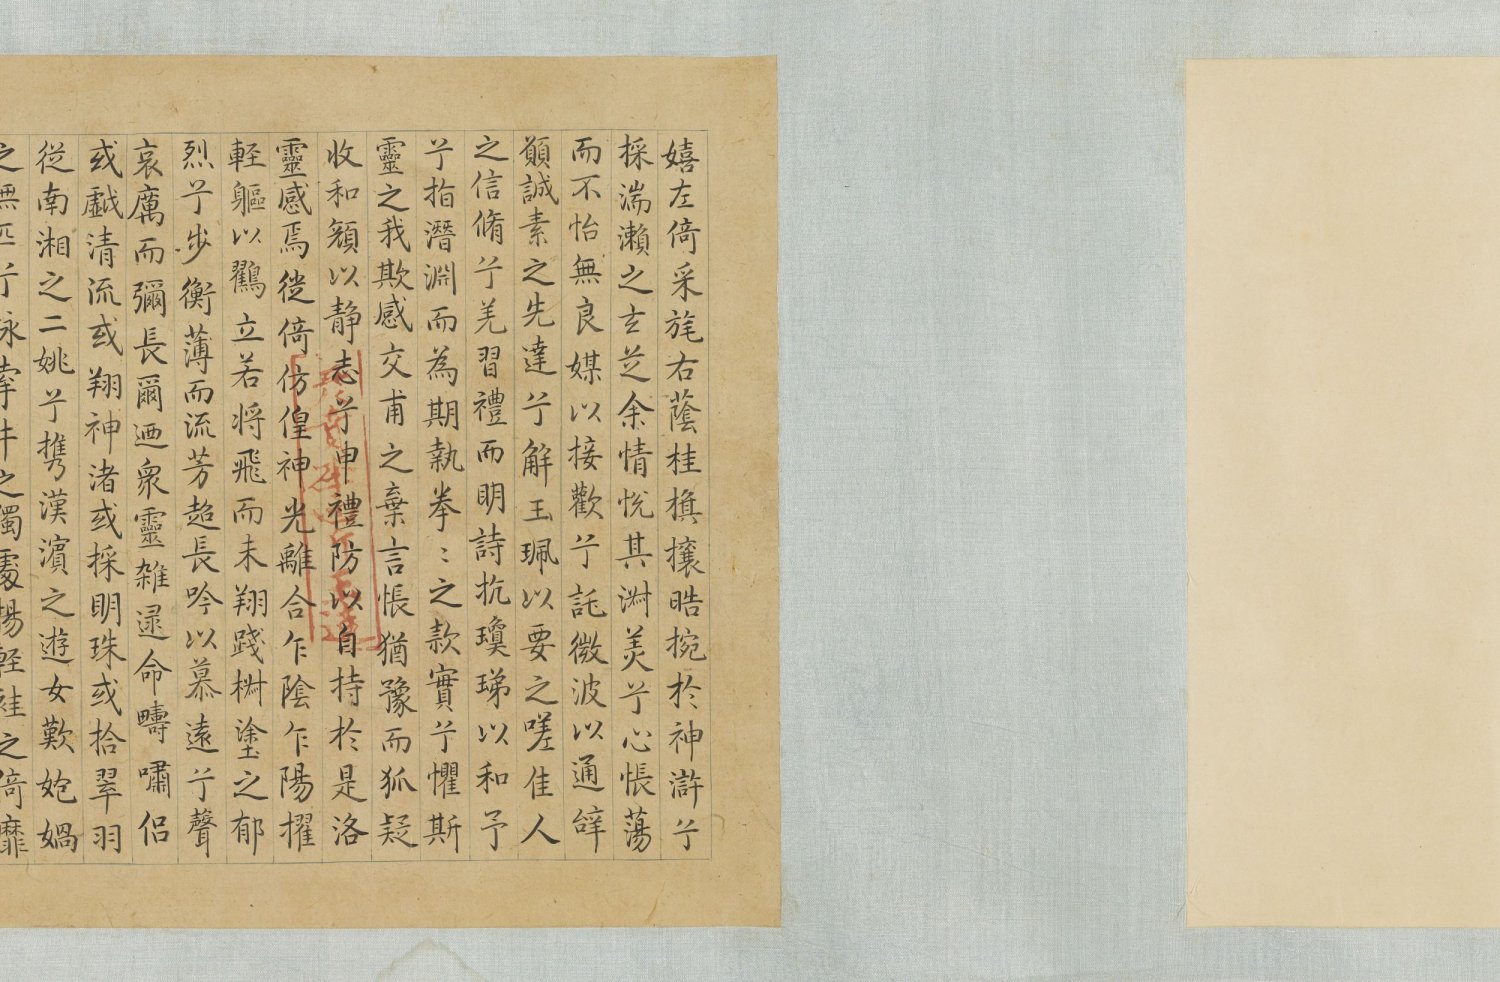 嬉左倚采旄右蔭桂旗攘皓捥於神滸兮
採湍瀨之玄芝余情悅其淑美兮心悵蕩
而不怡無良媒以接歡兮託微波以通辝
願誠素之先達兮解玉珮以要之嗟佳人
之信脩兮羌習禮而明詩抗瓊珶以和予
兮指潛淵而為期執拳〻之款實兮懼斯
靈之我欺感交甫之棄言悵猶豫而狐疑
收和顏以静志兮申禮防以自持於是洛
靈感焉徙倚仿偟神光離合乍陰乍陽擢
輕軀以鸖立若将飛而未翔踐椒塗之郁
烈兮步衡薄而流芳超長吟以慕遠兮聲
哀厲而彌長爾迺衆靈雜遝命疇嘯侶
或戲清流或翔神渚或採明珠或拾翠羽
從南湘之二姚兮攜漢濱之遊女歎匏媧
之無匹兮詠牽牛之獨處揚輕袿之倚靡